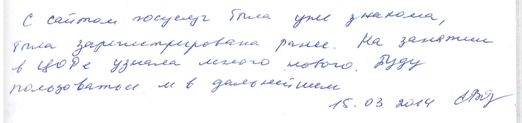 С сайтом госуслуг была уже знакома,
была зарегистрирована ранее. На занятии
в ЦОРе узнала много нового. Буду
пользоваться и в дальнейшем
15.03 2014